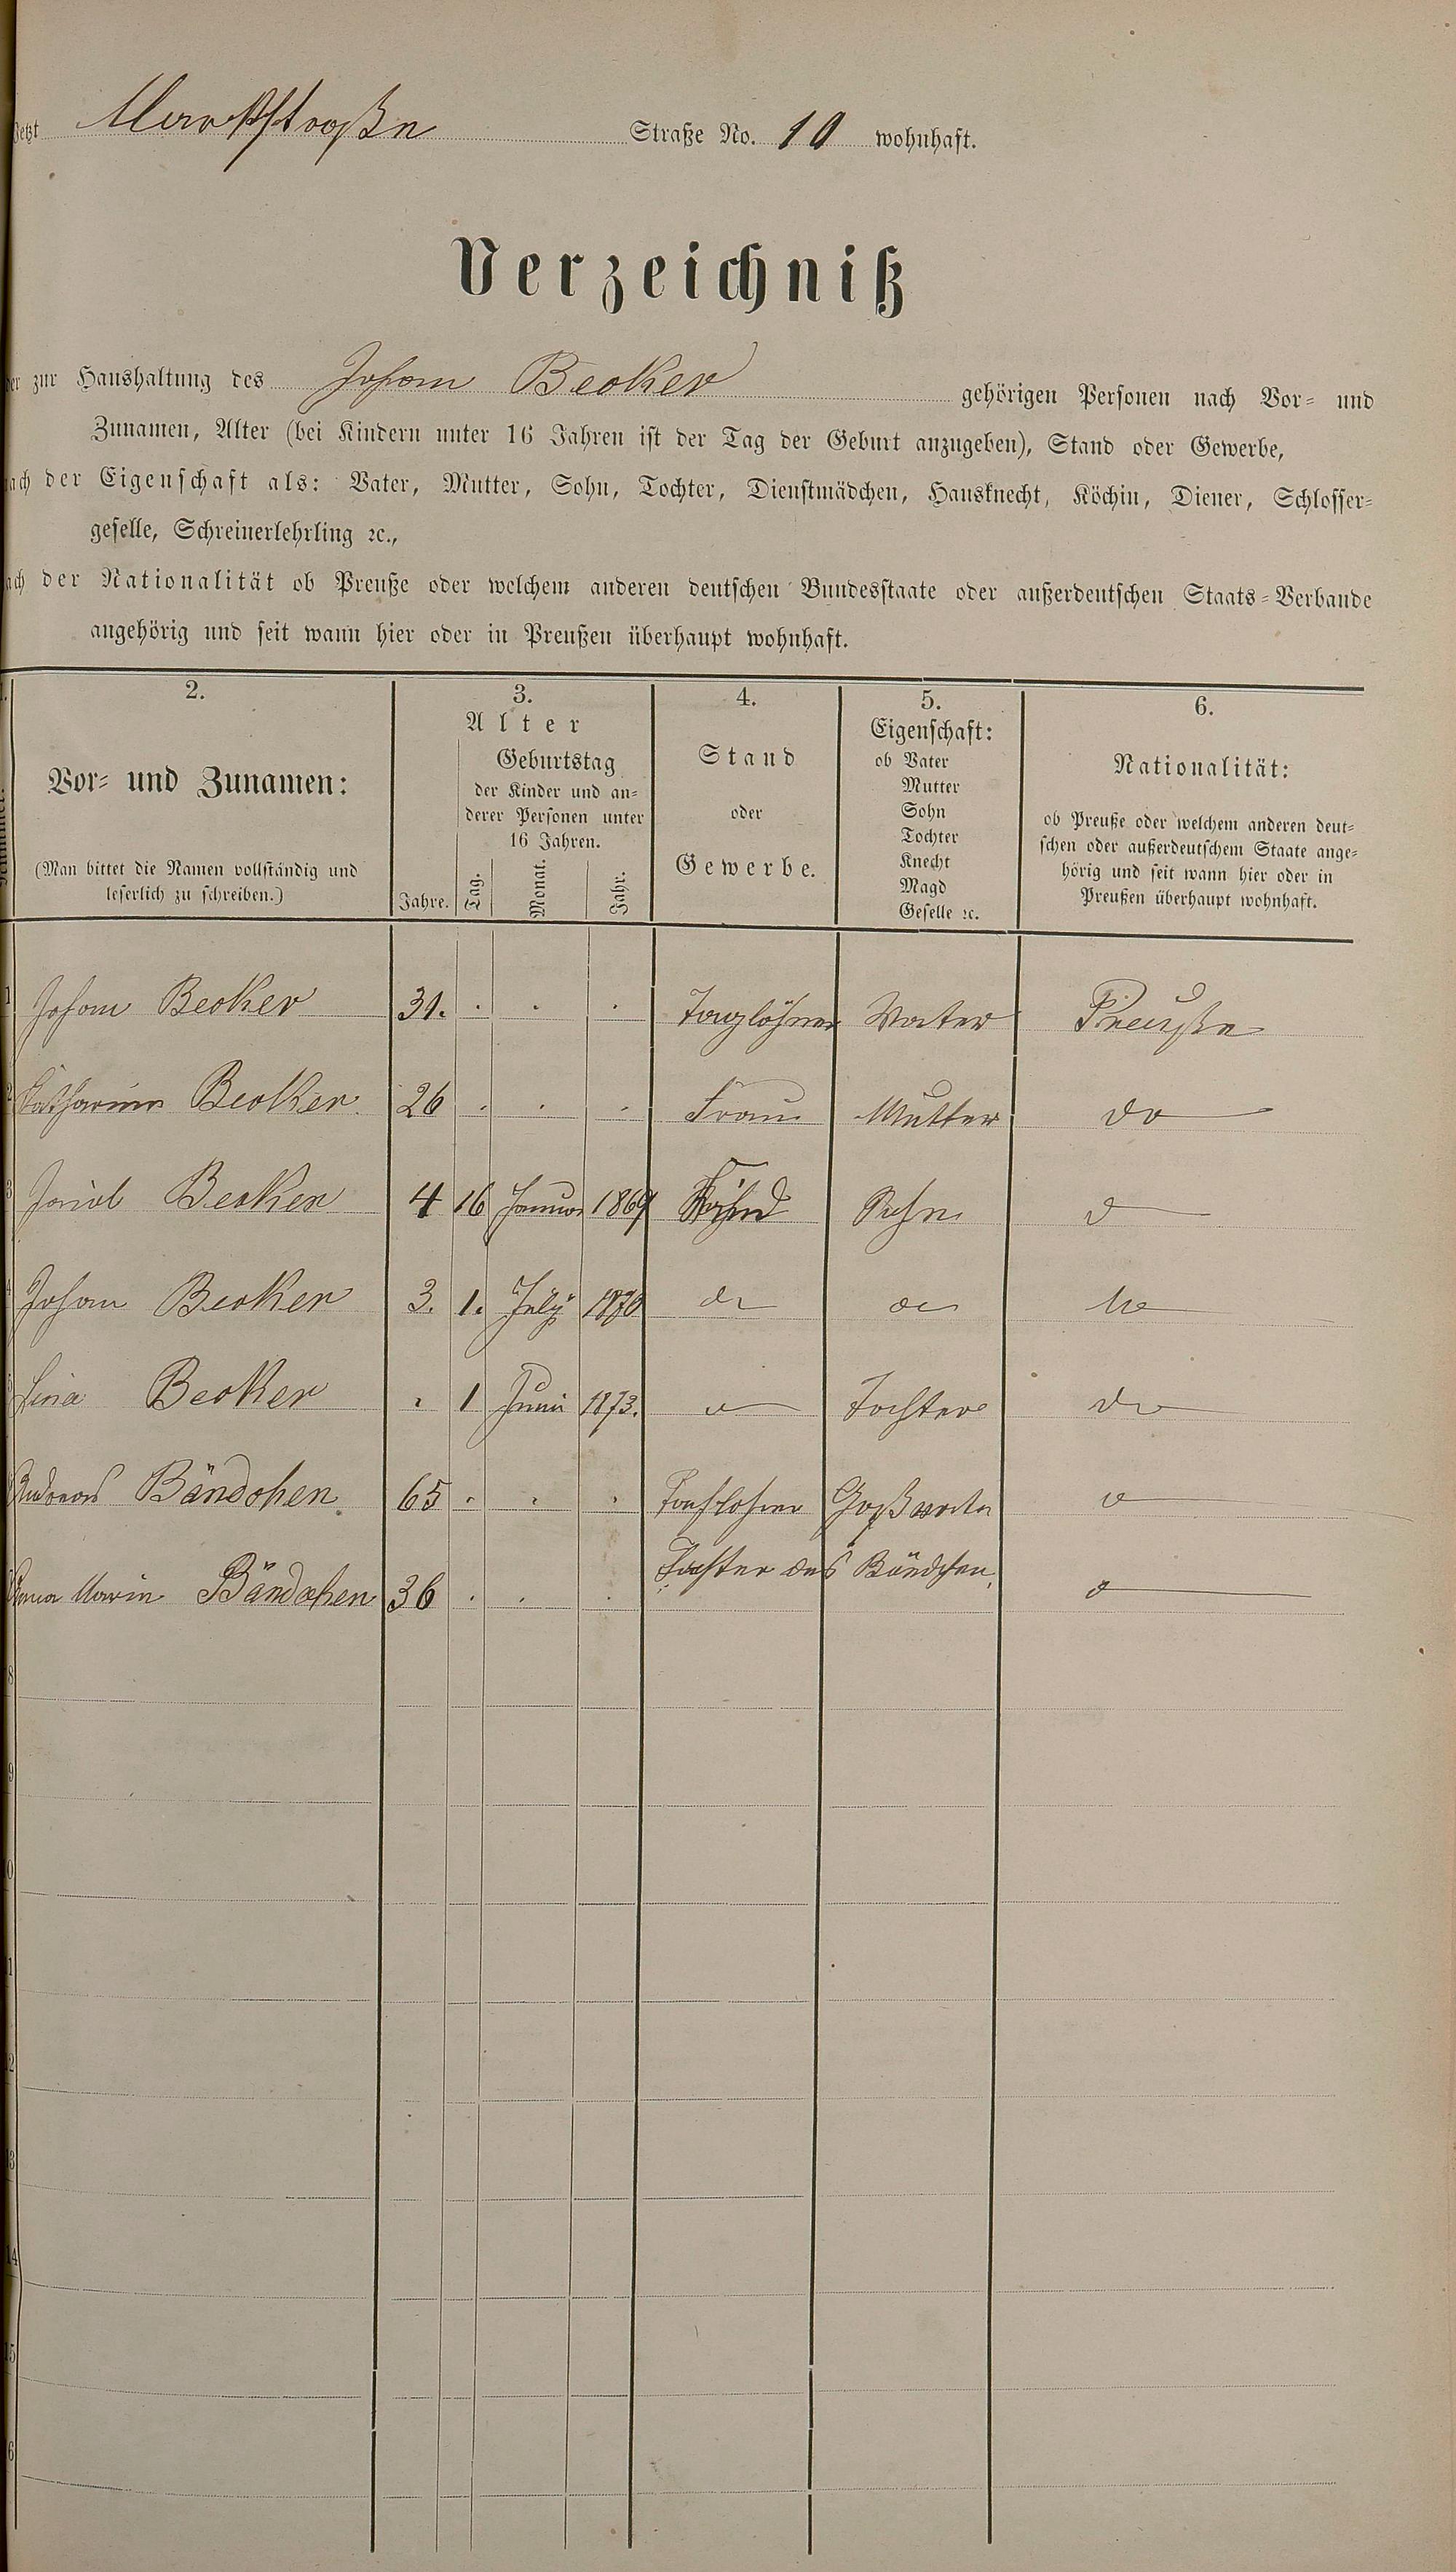 Jetzt Marktstraße Straße No. 10 wohnhaft.
Verzeichniß
der zur Haushaltung des Johann Becker gehörigen Personen nach Vor- und
Zunamen, Alter (bei Kindern unter 16 Jahren ist der Tag der Geburt anzugeben), Stand oder Gewerbe,
nach der Eigenschaft als: Vater, Mutter, Sohn, Tochter, Dienstmädchen, Hausknecht, Köchin, Diener, Schlosser-
geselle, Schreinerlehrling ꝛc.,
nach der Nationalität ob Preuße oder welchem anderen deutschen Bundesstaate oder außerdeutschen Staats-Verbande
angehörig und seit wann hier oder in Preußen überhaupt wohnhaft.
1. 2. 3. 4. 5. 6.
Vor- und Zunamen:
(Man bittet die Namen vollständig und
leserlich zu schreiben.)
Alter
Geburtstag
der Kinder und an-
derer Personen unter
16 Jahren.
Jahre. Tag. Monat. Jahr.
Stand
oder
Gewerbe.
Eigenschaft:
ob Vater
Mutter
Sohn
Tochter
Knecht
Magd
Geselle ꝛc.
Nationalität:
ob Preuße oder welchem anderen deut-
schen oder außerdeutschem Staate ange-
hörig und seit wann hier oder in
Preußen überhaupt wohnhaft.
1 Johann Becker 31. Taglöhner Vater Preuße
2 Katharina Becker 26 Frau Mutter do
3 Jacob Becker 4 16 Januar 1869 Kind Sohn d
4 Johann Becker 3. 1. July 1870 do do do
5 Lina Becker 1 Juni 1873. Tochter do
Andreas Bändchen 65 Taglöhner Großvater
Anna Maria Bändchen 36 Tochter des Bändchen
8
9
10
11
12
13
14
15
16